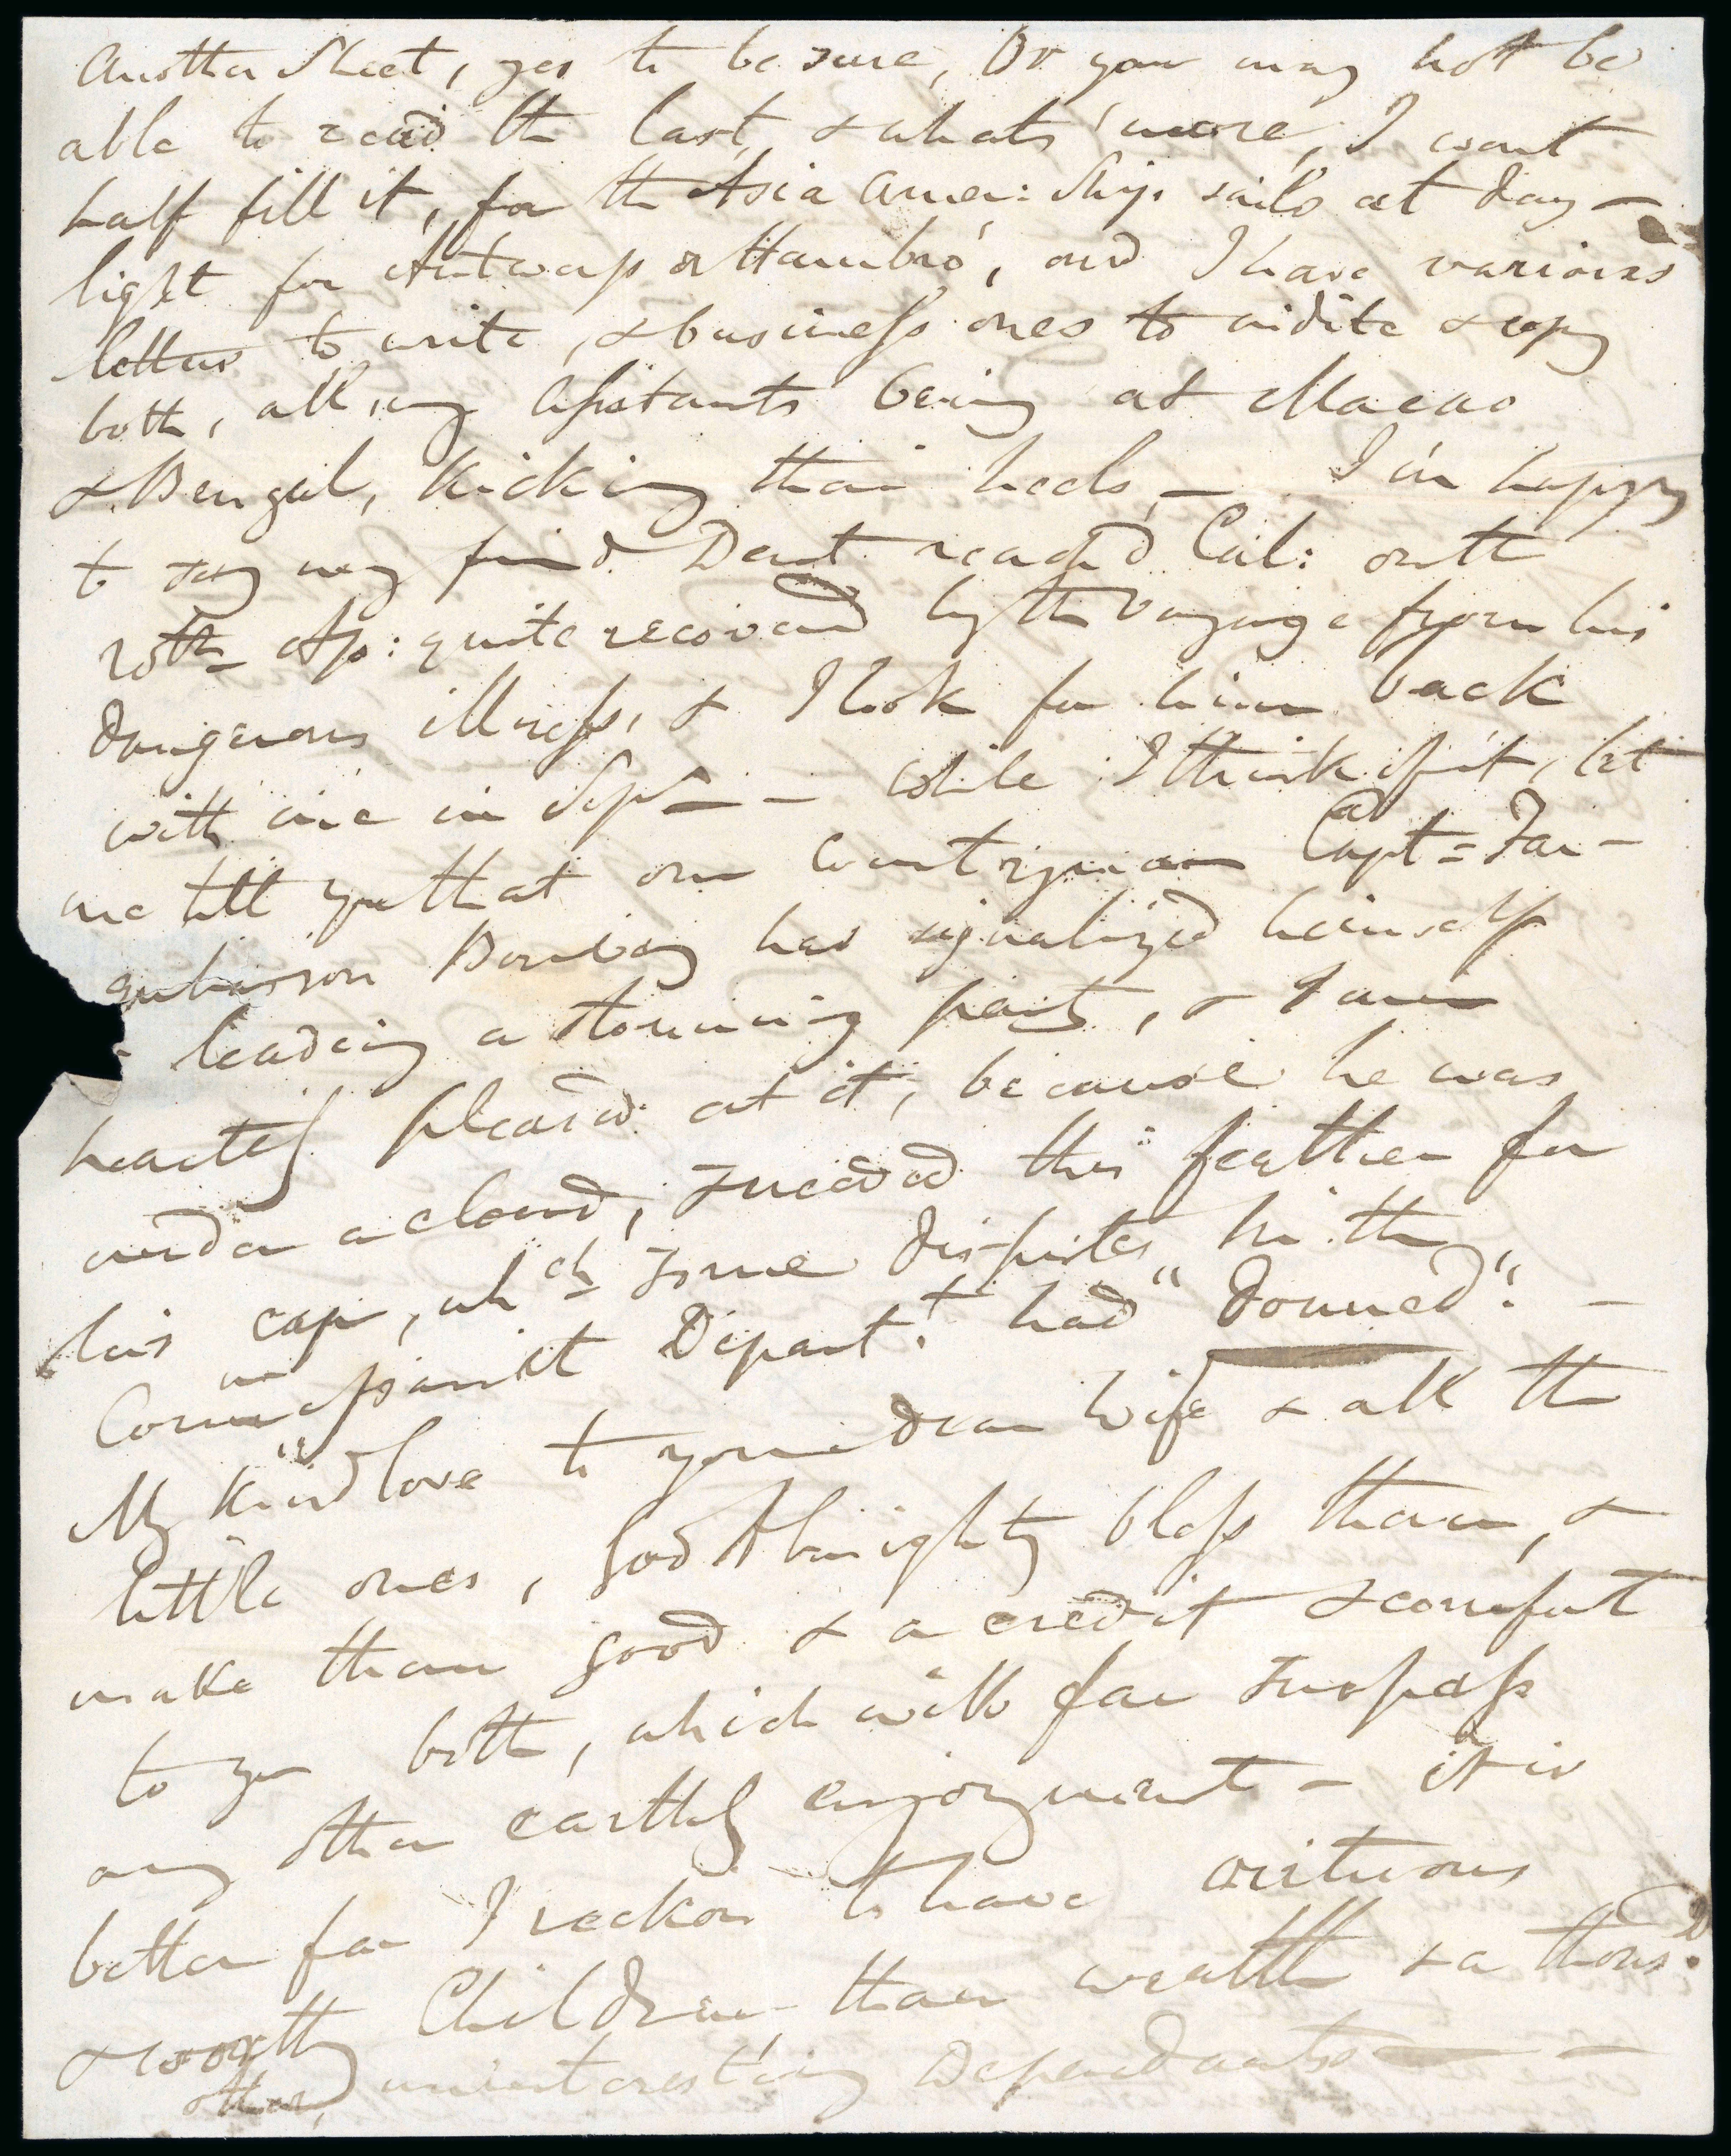 Another Sheet, yes to be sure, Or you may not be
able to read the last, & whats' more, I wont
half fill it, for the Asia Amer: Ship sails at day-
light for Antwerp or Hambro', and I have various
letters to write, & business ones to indite & copy
both, all my Assistants being at Macao
& Bengal, kicking their heels, — I'm happy
to say my friend Dent reached Cal: on the
20th Ap: quite recoverd by the voyage from his
dangerous illness, & I look for him back
with me in Sept — — while I think of it, let
me tell you that our Countryman Capt = Far-
quharson Bombay has signalized himself
leading a storming party, & I am
heartily pleas'd at it, because he was
under a cloud, & needed this feather for
his cap, which some disputes in the
Commissariat Depart.t had "downed". —
My kind love to your dear Wife & all the
little ones, God Almighty bless them, &
make them good & a credit & comfort
to you both, which will far surpass
any other earthly enjoyment — it is
better far I reckon to have virtuous
& worthy Children, than wealth & a thous.d
other, uninteresting Dependants — —